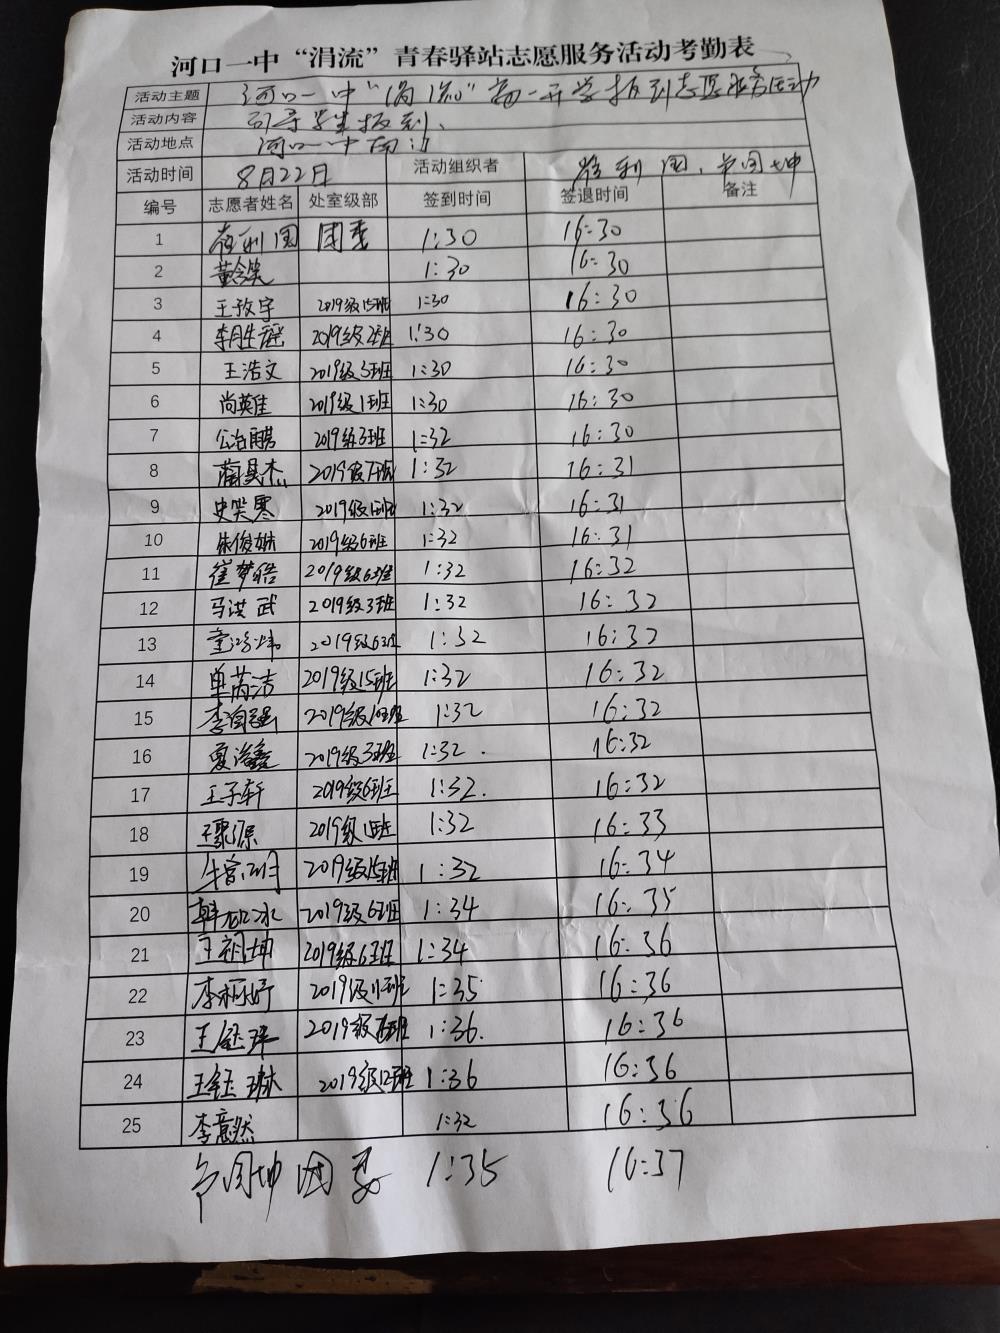 河口一中“涓流”青春驿站志愿服务活动考勤表
活动主题 河口一中“涓流”高一开学报到志愿服务活动
活动内容 引导学生报到、
活动地点 河口一中南门
活动时间 8月22日 活动组织者 利国、国坤
编号 志愿者姓名 处室级部 签到时间 签退时间 备注
1 利国 团委 1:30 16:30
2 黄含笑 1:30 16:30
3 王孜宇 2019级15班 1:30 16:30
4 李胜 2019级2班 1:30 16:30
5 王浩文 2019级5班 1:30 16:30
6 尚英佳 2019级1班 1:30 16:30
7 公冶 2019级3班 1:32 16:30
8 蔺昊杰 2019级 1:32 16:31
9 史笑寒 2019级 1:32 16:31
10 朱俊姝 2019级6班 1:32 16:31
11 崔梦皓 2019级6班 1:32 16:32
12 马洪武 2019级3班 1:32 16:32
13 2019级6班 1:32 16:32
14 单芮洁 2019级15班 1:32 16:32
15 李自强 2019级10班 1:32 16:32
16 夏浴鑫 2019级3班 1:32. 16:32
17 王子轩 2019级6班 1:32. 16:32
18 王 2019级 1:32 16:33
19 牛 2019级15班 1:32 16:34
20 韩 冰 2019级6班 1:34 16:35
21 王祖坤 2019级6班 1:34 16:36
22 李柯妤 2019级11班 1:35 16:36
23 王钰 2019级 1:36. 16:36
24 王钰琳 2019级12班 1:36 16:36
25 李意然 1:32 16:36
国坤 团委 1:35 16:37